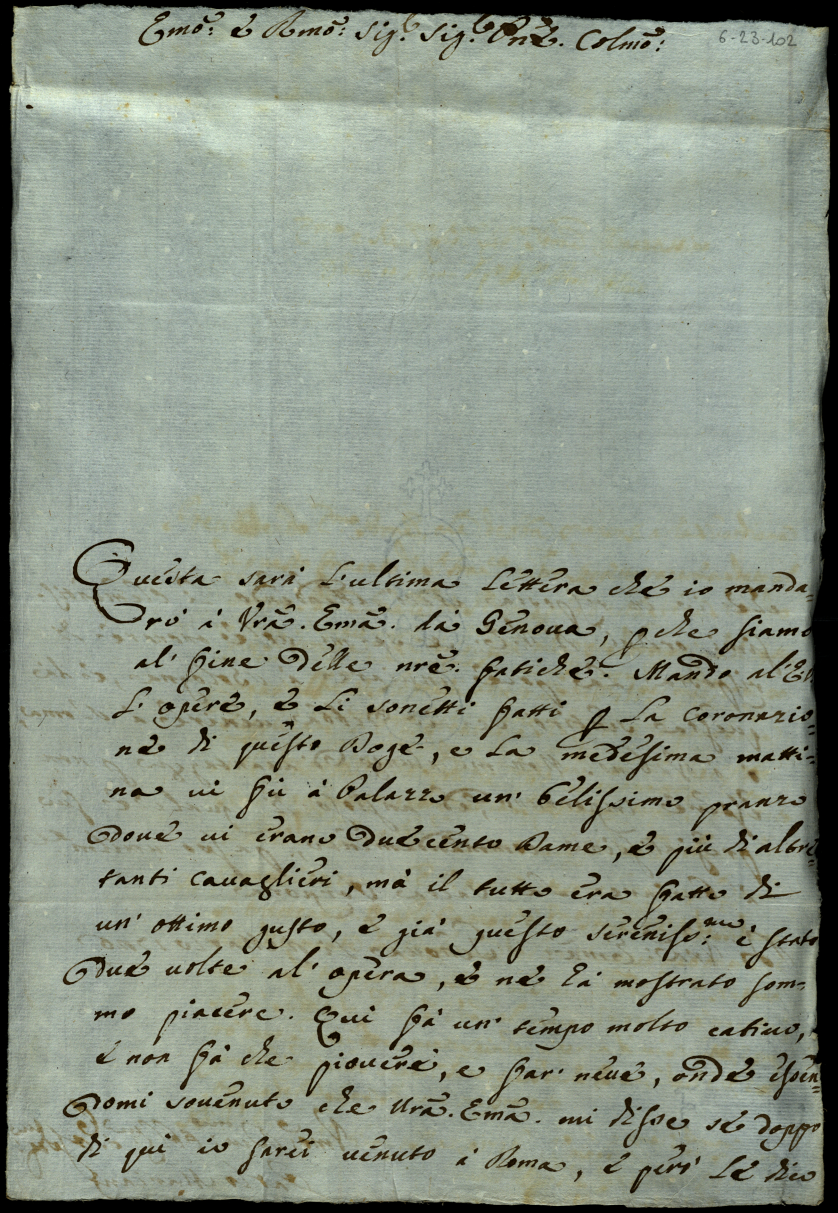 Emõ: è Rmõ: Sig.r Sig.r Pñe. Colmõ:
6-23-102
Questa sarà L'ultima Lettera che io manda=
rò à Vrã. Emã. dà Genova, p che siamo
al' fine delle nrẽ. fatiche. Mando al'
L'opere, è Li sonetti fatti p La coronazio=
ne di questo Doge, e La medesima matti=
na vi fù à Palazzo un' belissimo pranzo
dove vi erano Duecento Dame, è più di altre=
tanti cavaglieri, mà il tutto era fatto di
un' ottimo gusto, è già questo Sereniss:mo è stato
due volte al' opera, è ne hà mostrato som=
mo piacere. Qui fà un' tempo molto cativo,
è non fà che piovere, e far' neve, onde essen=
domi sovenuto che Vrã. Emã. mi disse se doppo
di qui io sarei venuto à Roma, è però Le dico